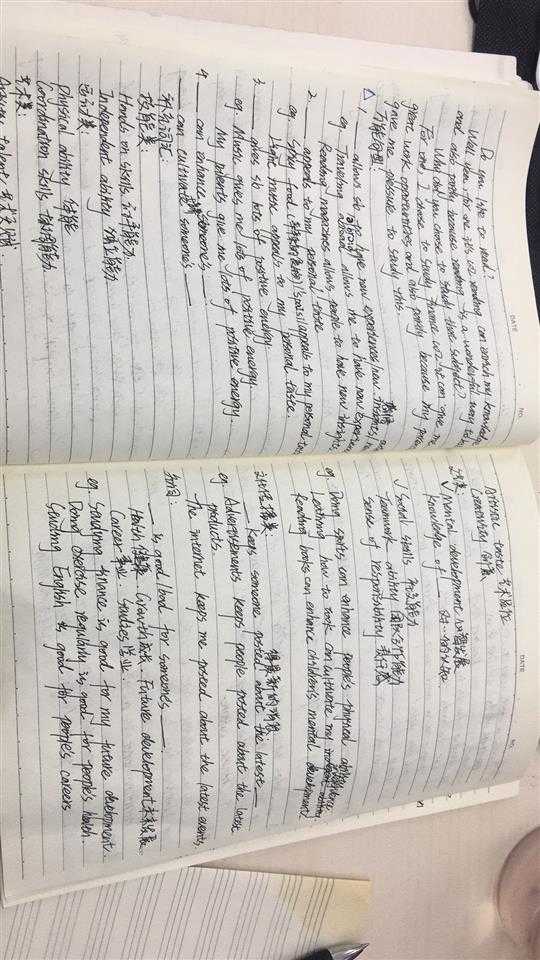 DATE
NO.
Do you like to read?
Well, for one, it's coz reading can enrich my knowledge
and also partly because reading is a wonderful way to
Why did you choose to study that subject?
For one I chose to study finance coz it can give me
great work opportunities and also partly because my
gave me pressure to study this.
万能句型:
1. ___ allows sb to have new experiences/new insights/
eg. Travelling abroad allows me to have new
Reading magazines allows people to have new insights
2. ___ appeals to my personal taste
eg. Spicy food appeals to my personal
Light music appeals to my personal taste.
3. ___ gives sb lots of positive energy
eg. Music gives me lots of positive energy.
My parents give me lots of positive energy.
4. ___ can enhance someone's ___
___ can cultivate 培养 someone's ___
补充词汇:
技能类:
Hands on skills 动手能力
Independent ability 独立能力
运动类:
Physical ability 体能
Coordination skills 协调能力
艺术类:
DATE
NO.
personal taste 艺术品位
Creativity 创意
Mental development 心智发展
knowledge of ___ 对…的认知
Social skills 社交能力
Teamwork ability 团队合作能力
sense of responsibility 责任感
eg. Doing sports can enhance people's physical ability
Learning how to cook can cultivate my independence
Reading books can enhance children's mental development
___ keeps someone posted about the latest ___
eg. Advertisements keeps people posted about the latest
products.
The internet keeps me posted about the latest events.
___ is good/bad for someone's ___.
Health 健康 Growth 成长 Future development 未来发展
Career 事业 Studies 学业
eg. Studying finance is good for my future development.
Doing exercise regularly is good for people's health.
Studying English is good for people's careers